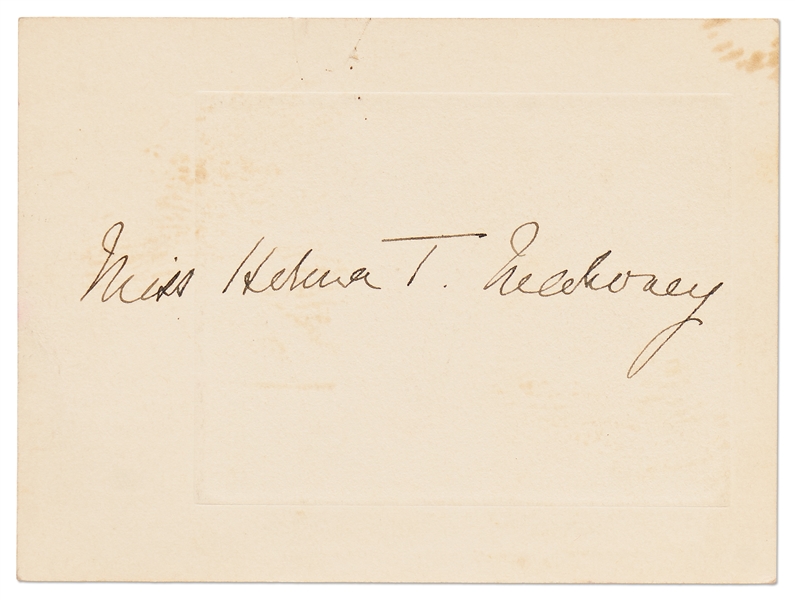 Miss Helena T. Mahoney